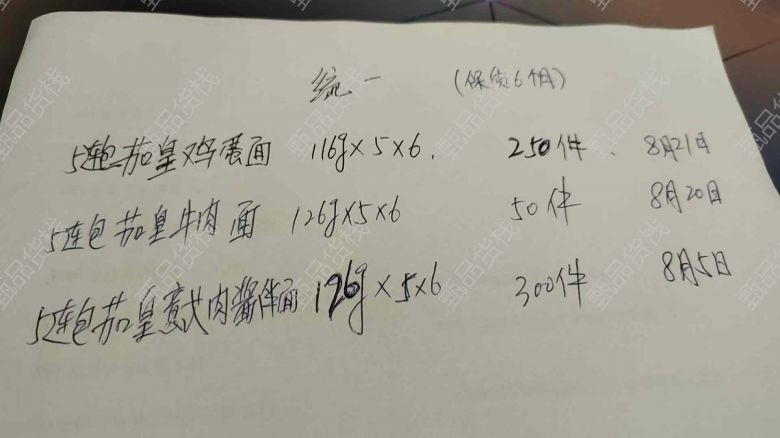 统一 (保质6个月)
5连包茄皇鸡蛋面 116g×5×6. 250件、 8月21日
5连包茄皇牛肉面 126g×5×6 50件 8月20日
5连包茄皇意式肉酱伴面 126g×5×6 300件 8月5日
甄品货栈